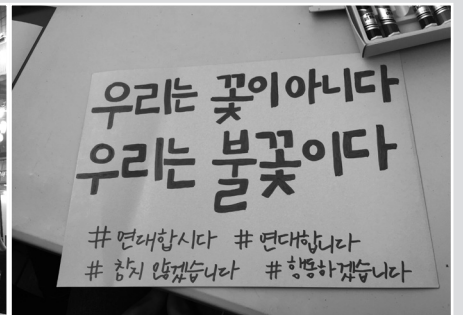 우리는 꽃이 아니다
우리는 불꽃이다
# 연대합시다 # 연대합니다
# 참지 않겠습니다 # 행동하겠습니다